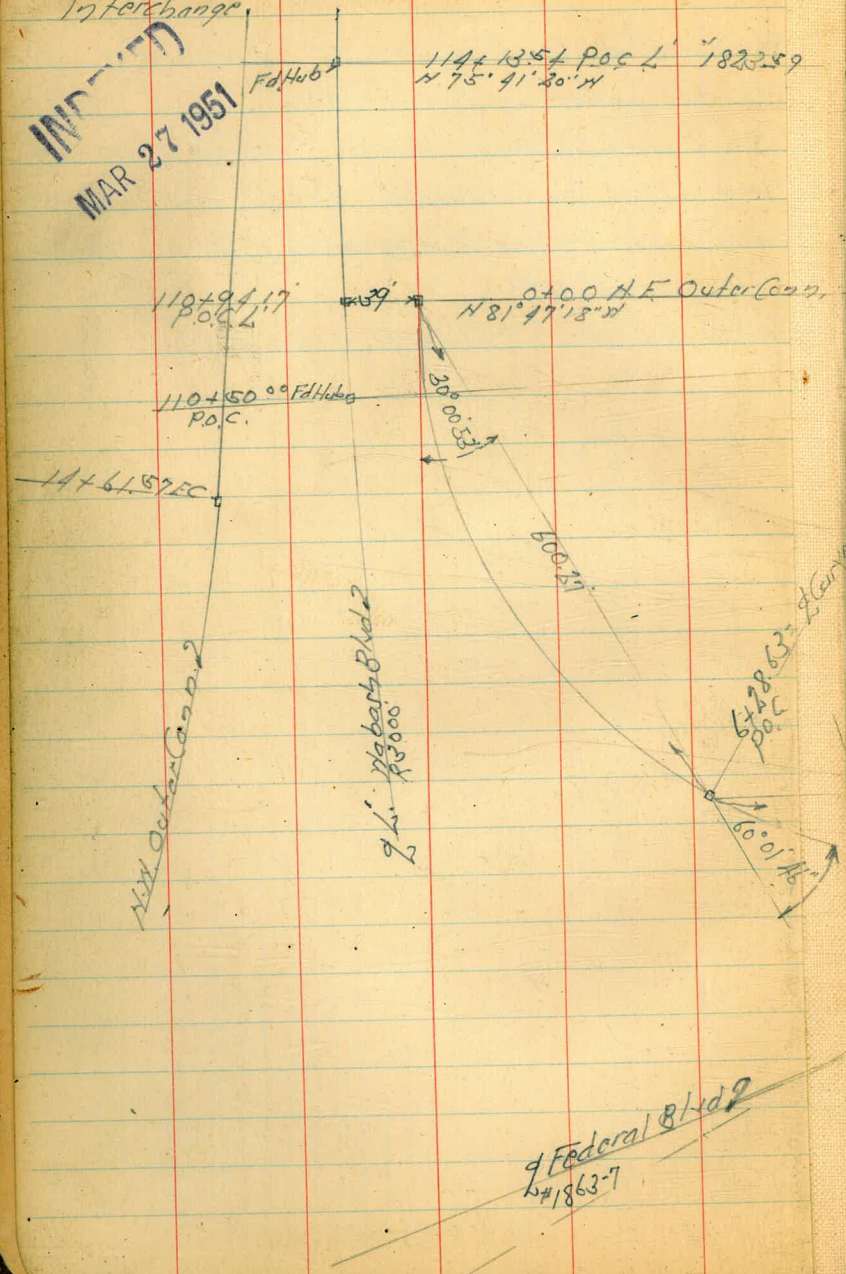 Interchange
INDEXED
MAR 27 1951
Fd Hub
114+13.54 P.O.C. L'
N 75° 41' 30" W
110+94.17
P.O.C. L'
39'
0+00 N.E. Outer Conn.
N 81° 47' 18" W
110+50.00 Fd Hub
P.O.C.
14+61.57 EC
30° 00' 53"
600.27'
6+28.63
P.O.C.
60° 01' 46"
N.W. Outer Conn.
℄ L' Wabash Blvd
R 3000'
℄ Federal Blvd
L#1863-7